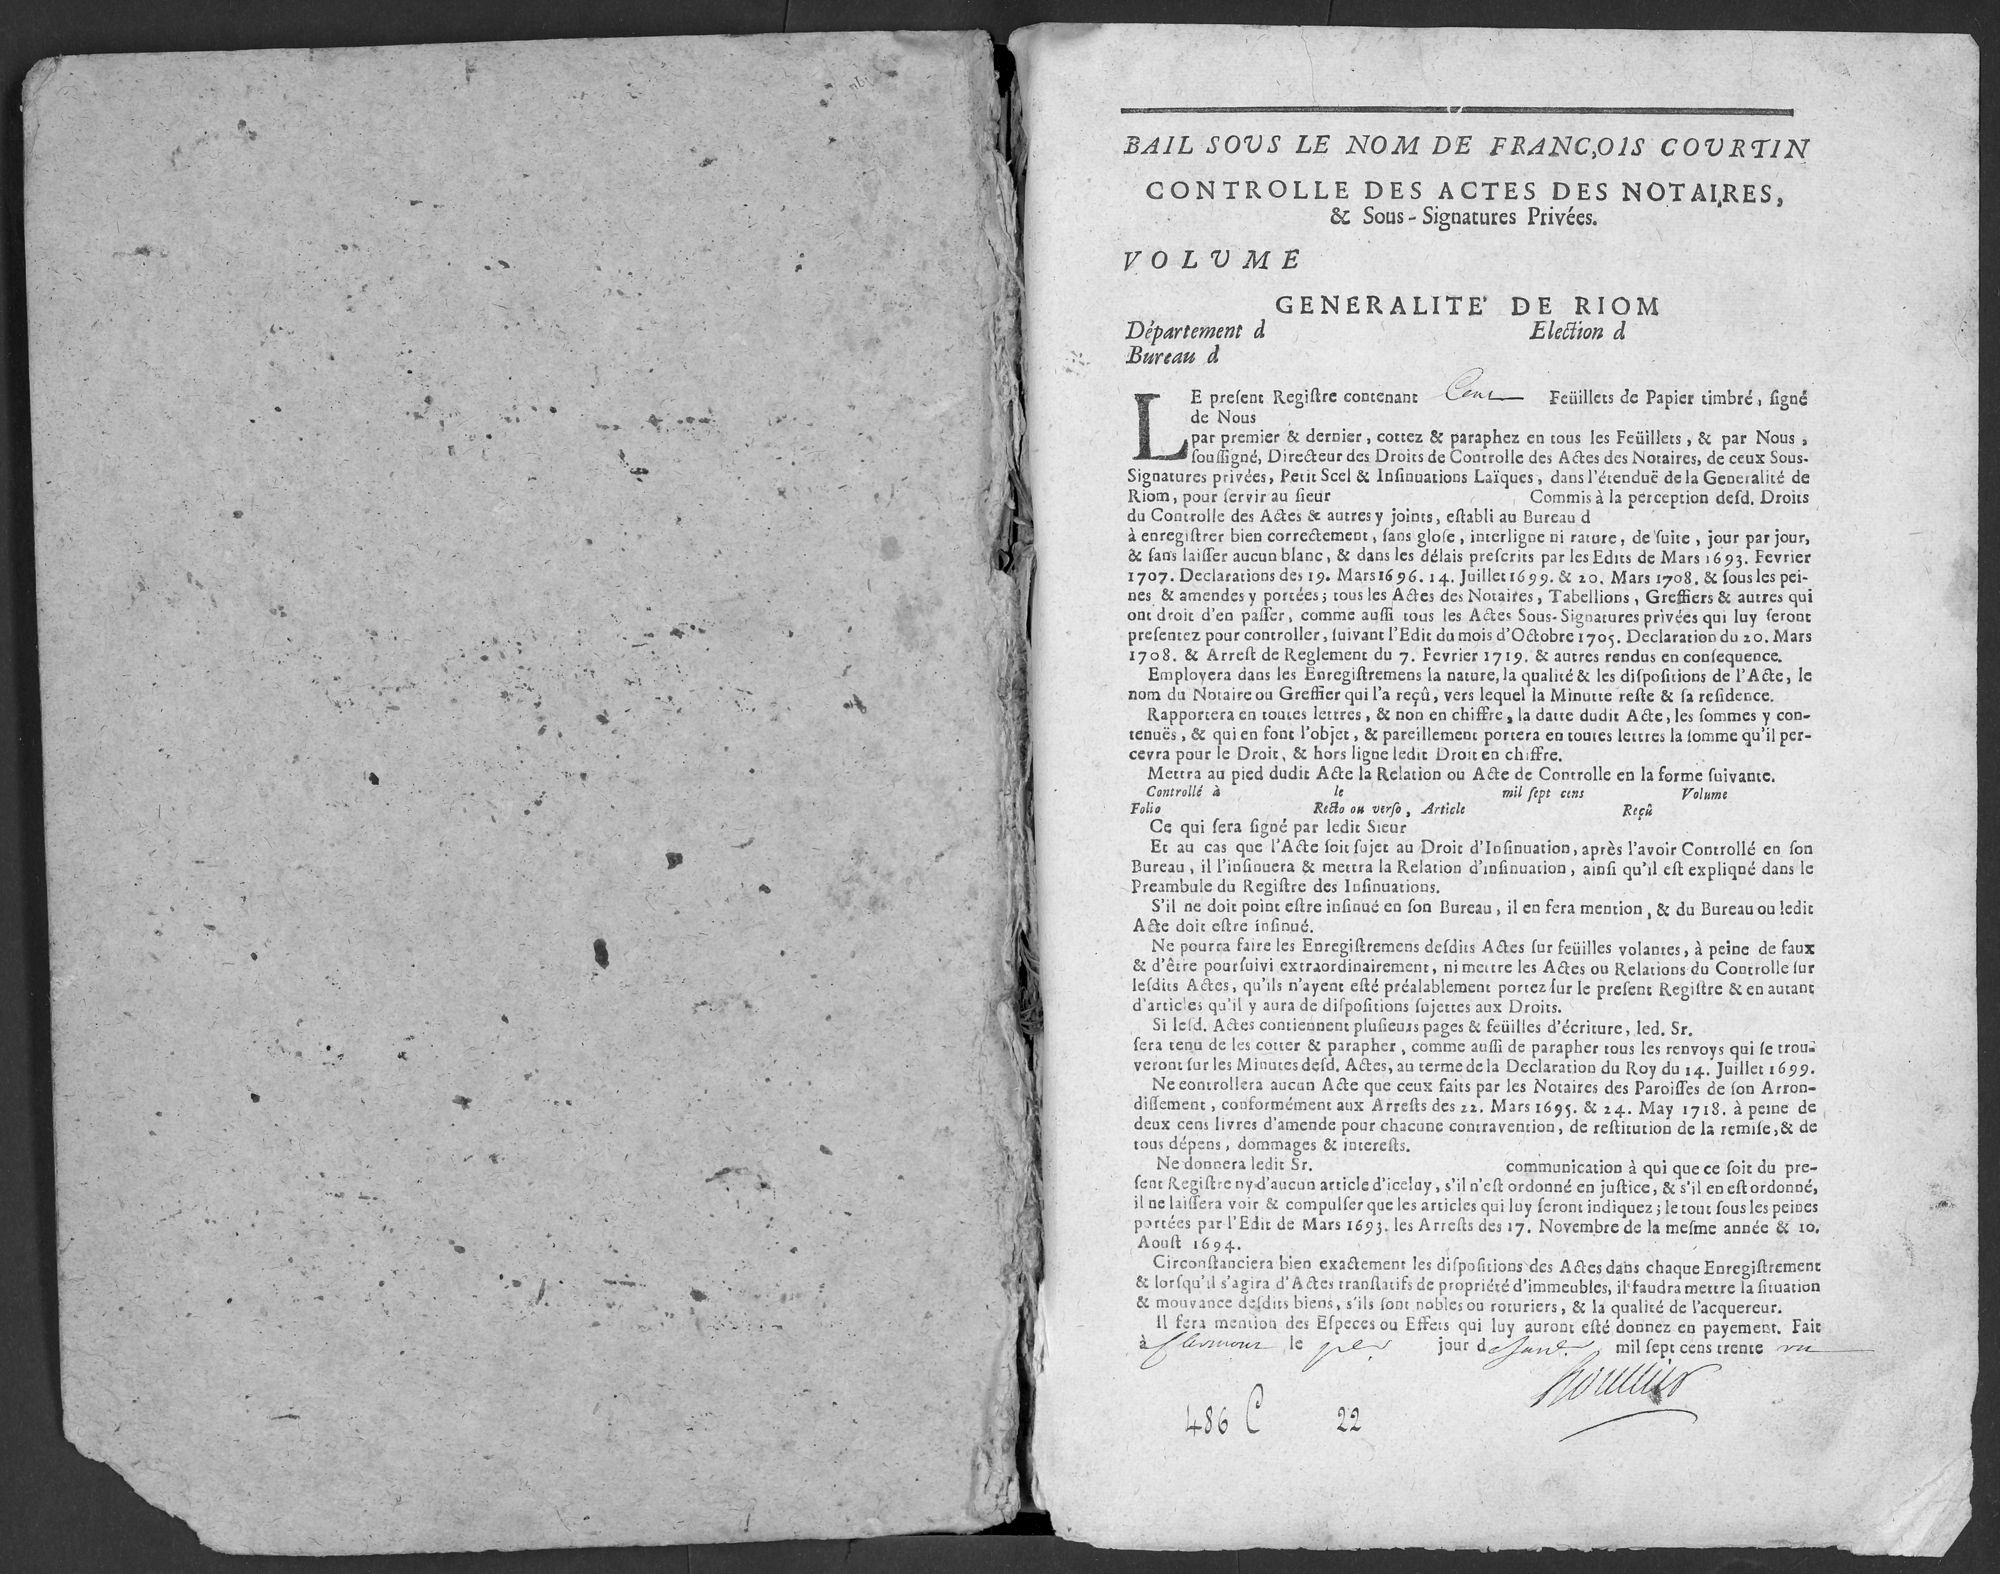 BAIL SOUS LE NOM DE FRANC,OIS COURTIN
CONTROLLE DES ACTES DES NOTAIRES,
& Sous-Signatures Privées.
VOLUME
GENERALITE' DE RIOM
Département d Election d
Bureau d
LE preſent Regiſtre contenant Cent Feüillets de Papier timbré, ſigné
de Nous
par premier & dernier, cottez & paraphez en tous les Feüillets, & par Nous,
ſouſſigné, Directeur des Droits de Controlle des Actes des Notaires, de ceux Sous-
Signatures privées, Petit Scel & Inſinuations Laïques, dans l'étenduë de la Generalité de
Riom, pour ſervir au ſieur Commis à la perception deſd. Droits
du Controlle des Actes & autres y joints, eſtabli au Bureau d
à enregiſtrer bien correctement, ſans gloſe, interligne ni rature, de ſuite, jour par jour,
& ſans laiſſer aucun blanc, & dans les délais preſcrits par les Edits de Mars 1693. Fevrier
1707. Declarations des 19. Mars 1696. 14. Juillet 1699. & 20. Mars 1708. & ſous les pei-
nes & amendes y portées; tous les Actes des Notaires, Tabellions, Greffiers & autres qui
ont droit d'en paſſer, comme auſſi tous les Actes Sous-Signatures privées qui luy ſeront
preſentez pour controller, ſuivant l'Edit du mois d'Octobre 1705. Declaration du 20. Mars
1708. & Arreſt de Reglement du 7. Fevrier 1719. & autres rendus en conſequence.
Employera dans les Enregiſtremens la nature, la qualité & les diſpoſitions de l'Acte, le
nom du Notaire ou Greffier qui l'a reçû, vers lequel la Minutte reſte & ſa reſidence.
Rapportera en toutes lettres, & non en chiffre, la datte dudit Acte, les ſommes y con-
tenuës, & qui en font l'objet, & pareillement portera en toutes lettres la ſomme qu'il per-
cevra pour le Droit, & hors ligne ledit Droit en chiffre.
Mettra au pied dudit Acte la Relation ou Acte de Controlle en la forme ſuivante.
Controllé à le mil ſept cens Volume
Folio Recto ou verſo, Article Reçû
Ce qui ſera ſigné par ledit Sieur
Et au cas que l'Acte ſoit ſujet au Droit d'Inſinuation, après l'avoir Controllé en ſon
Bureau, il l'inſinuera & mettra la Relation d'inſinuation, ainſi qu'il eſt expliqué dans le
Preambule du Regiſtre des Inſinuations.
S'il ne doit point eſtre inſinué en ſon Bureau, il en fera mention, & du Bureau ou ledit
Acte doit eſtre inſinué.
Ne pourra faire les Enregiſtremens deſdits Actes ſur feüilles volantes, à peine de faux
& d'être pourſuivi extraordinairement, ni mettre les Actes ou Relations du Controlle ſur
leſdits Actes, qu'ils n'ayent eſté préalablement portez ſur le preſent Regiſtre & en autant
d'articles qu'il y aura de diſpoſitions ſujettes aux Droits.
Si leſd. Actes contiennent pluſieurs pages & feüilles d'écriture, led. Sr.
ſera tenu de les cotter & parapher, comme auſſi de parapher tous les renvoys qui ſe trou-
veront ſur les Minutes deſd. Actes, au terme de la Declaration du Roy du 14. Juillet 1699.
Ne eontrollera aucun Acte que ceux faits par les Notaires des Paroiſſes de ſon Arron-
diſſement, conformément aux Arreſts des 22. Mars 1695. & 24. May 1718. à peine de
deux cens livres d'amende pour chacune contravention, de reſtitution de la remiſe, & de
tous dépens, dommages & intereſts.
Ne donnera ledit Sr. communication à qui que ce ſoit du pre-
ſent Regiſtre ny d'aucun article d'iceluy, s'il n'eſt ordonné en juſtice, & s'il en eſt ordonné,
il ne laiſſera voir & compulſer que les articles qui luy ſeront indiquez; le tout ſous les peines
portées par l'Edit de Mars 1693. les Arreſts des 17. Novembre de la meſme année & 10.
Aouſt 1694.
Circonſtanciera bien exactement les diſpoſitions des Actes dans chaque Enregiſtrement
& lorſqu'il s'agira d'Actes tranſlatifs de propriété d'immeubles, il faudra mettre la ſituation
& mouvance deſdits biens, s'ils ſont nobles ou roturiers, & la qualité de l'acquereur.
Il fera mention des Eſpeces ou Effets qui luy auront eſté donnez en payement. Fait
à Clermont le per jour de Janv. mil ſept cens trente un
486 C 22